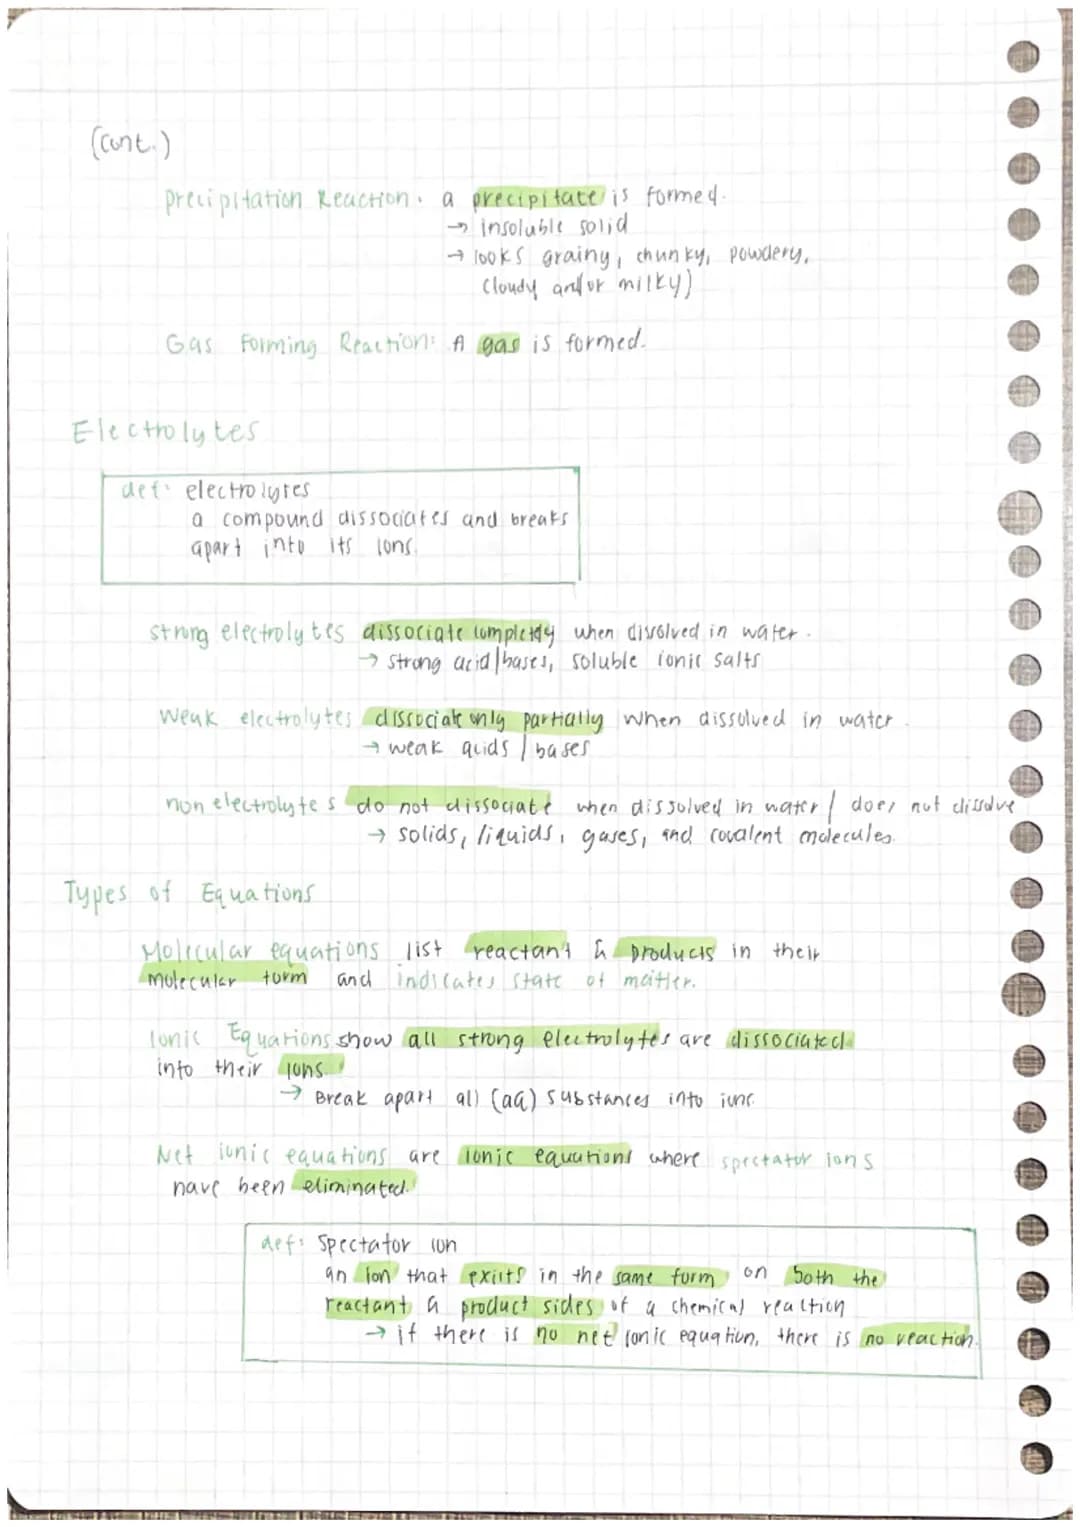 (cont.)
Precipitation Reaction: a precipitate is formed.
→ insoluble solid
→ looks grainy, chunky, powdery,
cloudy and/or milky)
Gas Forming Reaction: A gas is formed.
Electrolytes
def: electrolytes
a compound dissociates and breaks
apart into its ions.
strong electrolytes dissociate completely when dissolved in water.
→ strong acid/bases, soluble ionic salts
Weak electrolytes dissociate only partially when dissolved in water.
→ weak acids / bases
non electrolytes do not dissociate when dissolved in water / does not dissolve
→ solids, liquids, gases, and covalent molecules.
Types of Equations
Molecular equations list reactant & products in their
molecular form and indicates state of matter.
Ionic Equations show all strong electrolytes are dissociated
into their ions.
→ Break apart all (aq) substances into ions
Net ionic equations are ionic equations where spectator ions
have been eliminated.
def: Spectator ion
an ion that exists in the same form on both the
reactant & product sides of a chemical reaction
→ if there is no net ionic equation, there is no reaction.